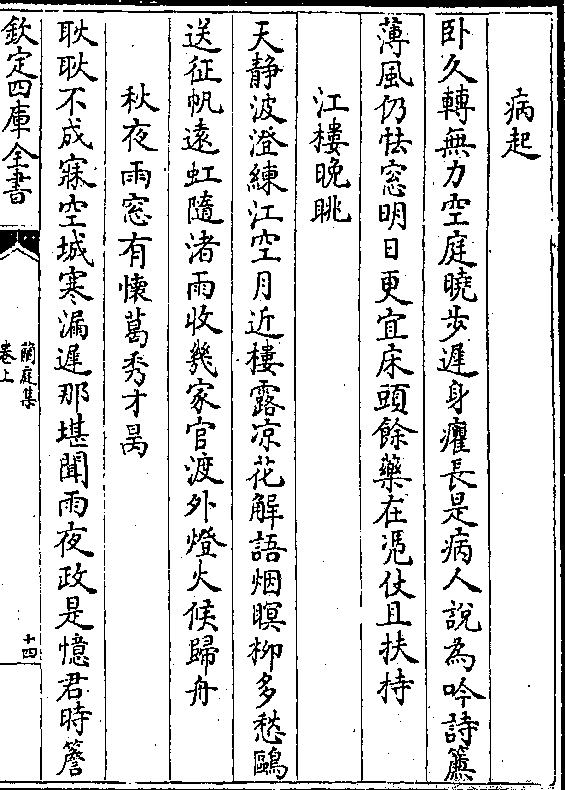 病起
卧久轉無力空庭曉步遲身癯長是病人說為吟詩簾
薄風仍怯窓明日更宜床頭餘藥在凴仗且扶持
江樓晚眺
天静波澄練江空月近樓露凉花解語烟暝柳多愁鷗
送征帆遠虹隨渚雨收幾家官渡外燈火候歸舟
秋夜雨窓有懷葛秀才昺
耿耿不成寐空城寒漏遲那堪聞雨夜政是憶君時簷
欽定四庫全書
蘭庭集
卷上
十四